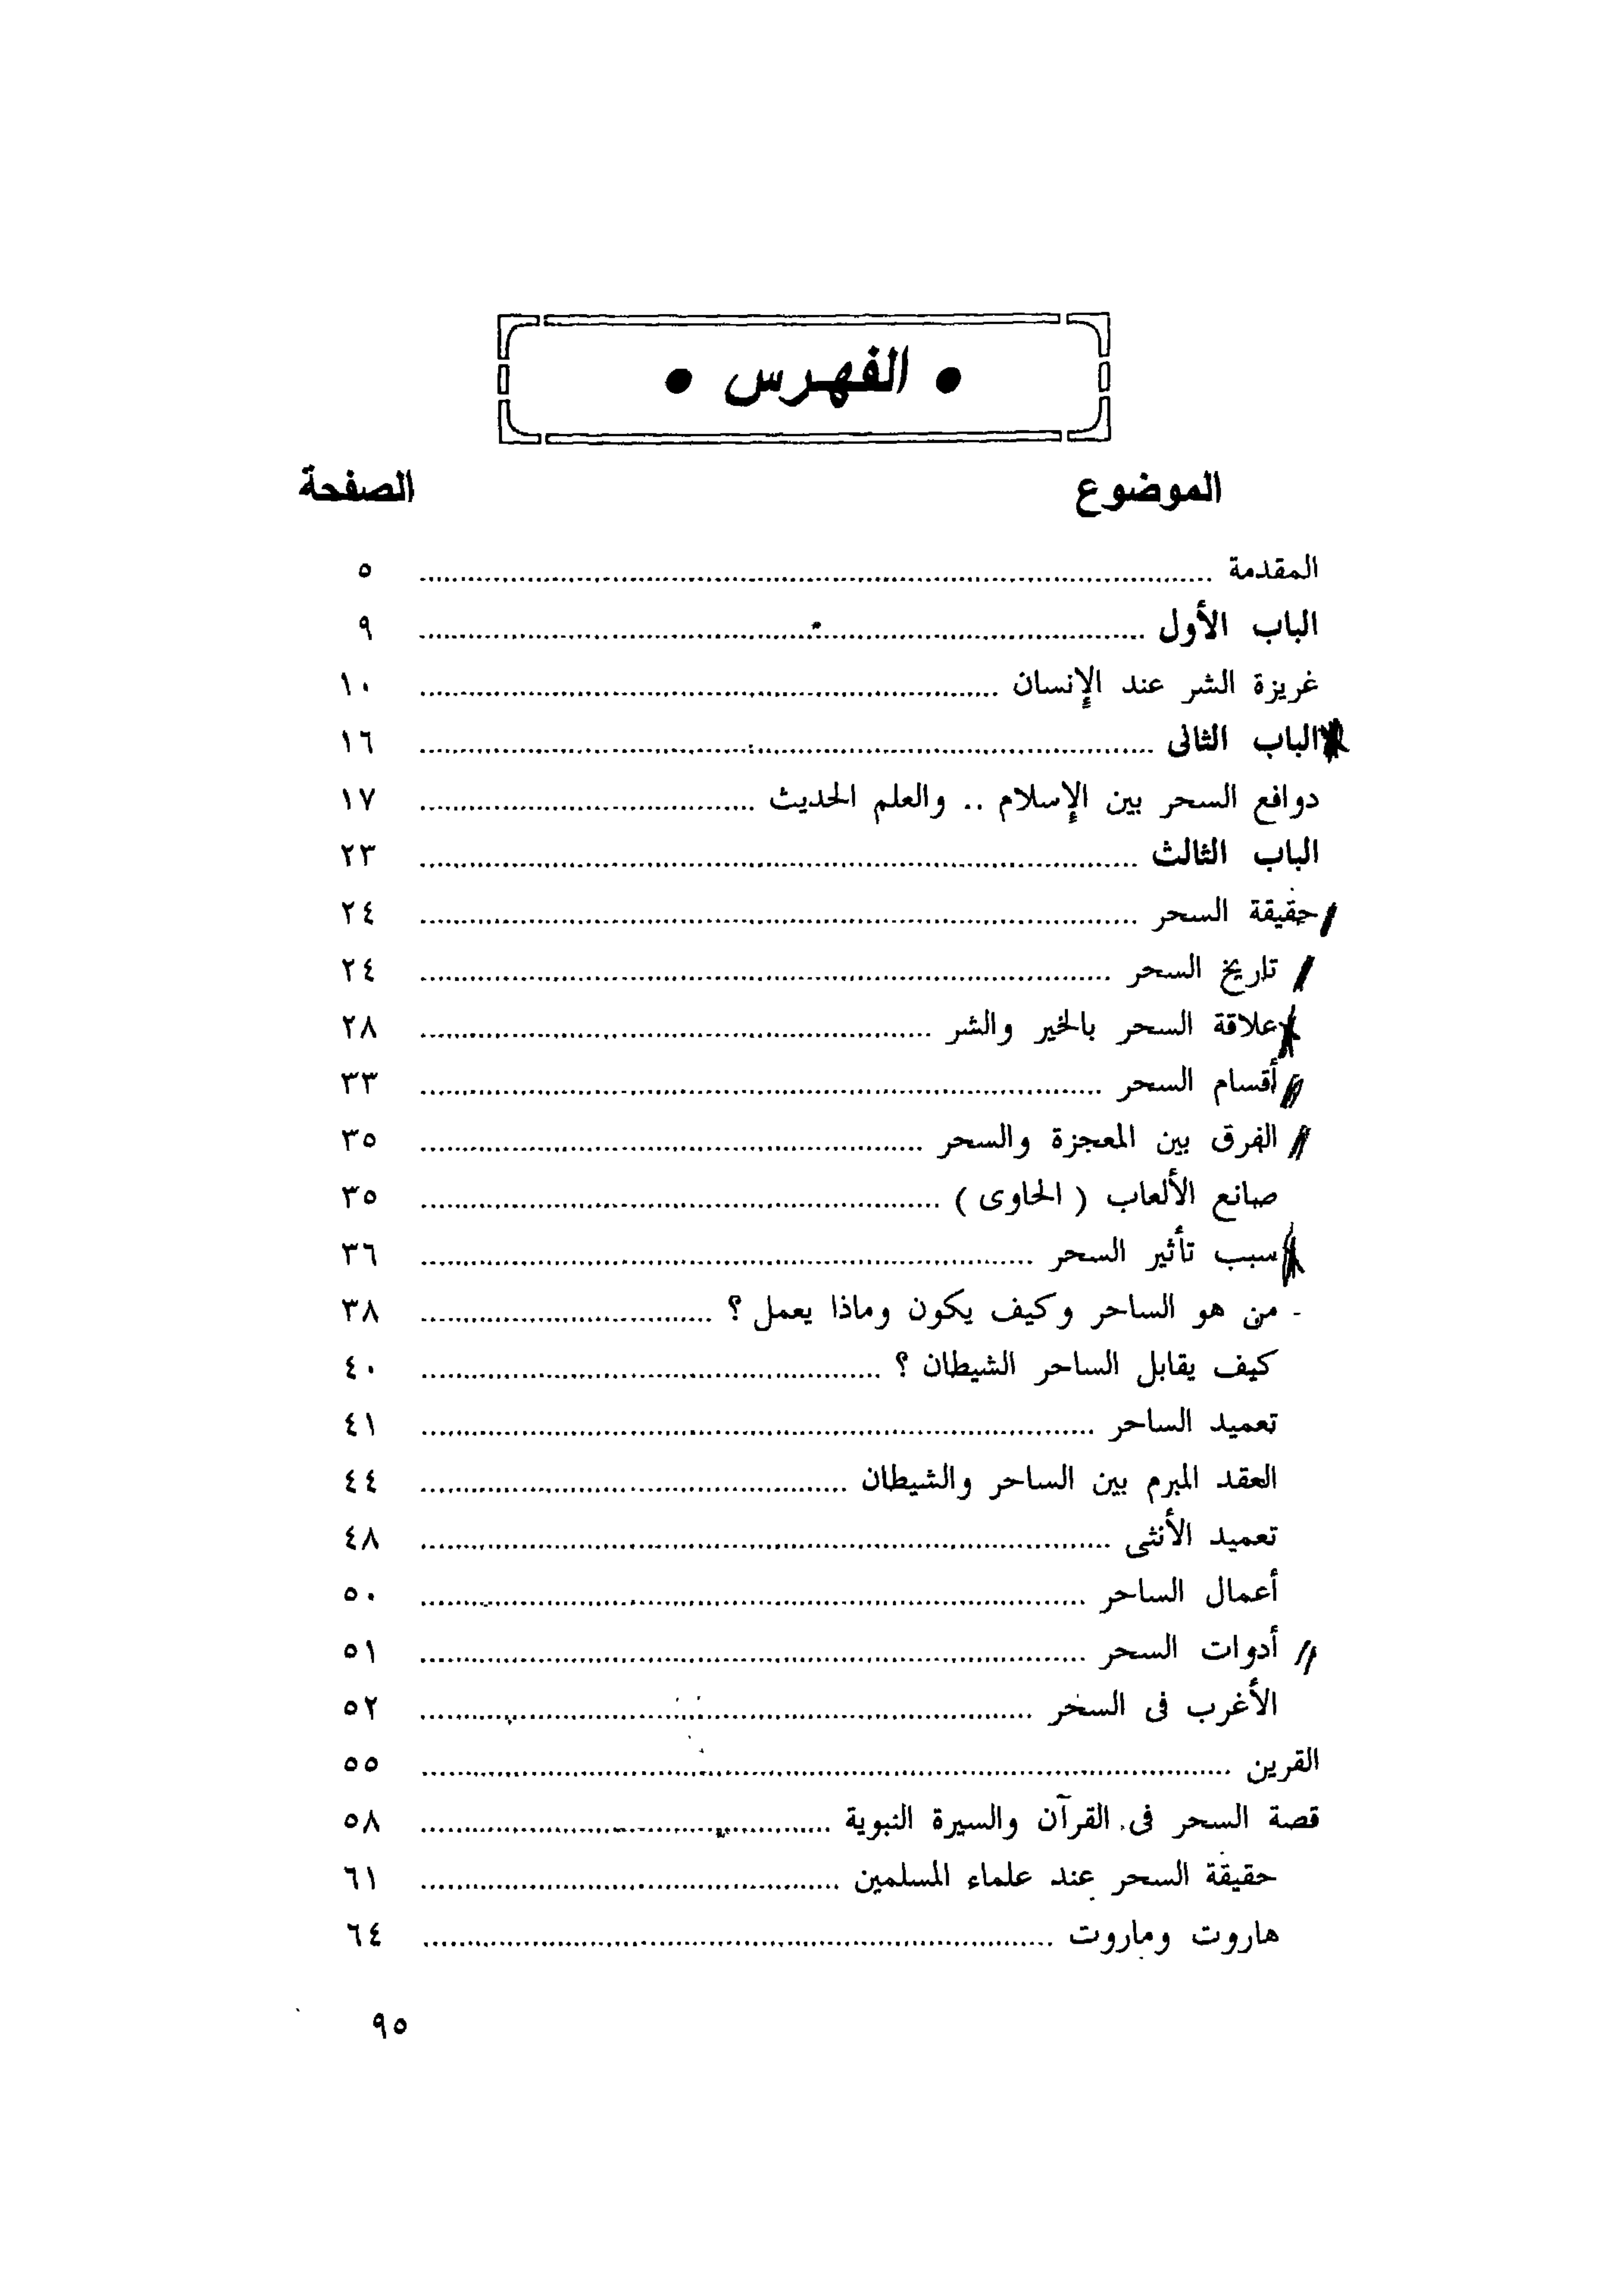 • الفهرس •
الموضوع الصفحة
المقدمة ........ ٥
الباب الأول ........ ٩
غريزة الشر عند الإنسان ........ ١٠
الباب الثانى ........ ١٦
دوافع السحر بين الإسلام .. والعلم الحديث ........ ١٧
الباب الثالث ........ ٢٣
حقيقة السحر ........ ٢٤
تاريخ السحر ........ ٢٤
علاقة السحر بالخير والشر ........ ٢٨
أقسام السحر ........ ٣٣
الفرق بين المعجزة والسحر ........ ٣٥
صانع الألعاب ( الحاوى ) ........ ٣٥
سبب تأثير السحر ........ ٣٦
- من هو الساحر وكيف يكون وماذا يعمل ؟ ........ ٣٨
كيف يقابل الساحر الشيطان ؟ ........ ٤٠
تعميد الساحر ........ ٤١
العقد المبرم بين الساحر والشيطان ........ ٤٤
تعميد الأنثى ........ ٤٨
أعمال الساحر ........ ٥٠
أدوات السحر ........ ٥١
الأغرب فى السحر ........ ٥٢
القرين ........ ٥٥
قصة السحر فى القرآن والسيرة النبوية ........ ٥٨
حقيقة السحر عند علماء المسلمين ........ ٦١
هاروت وماروت ........ ٦٤
٩٥